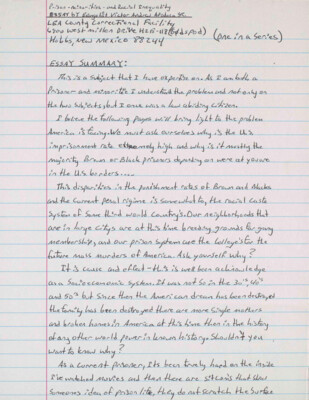 Prison-minorities-and Racial Inequality
ESSAY BY Evangelist Victor Andrew Apodaca Sr.
LEA County Correctional Facility
6900 West Millen Drive
Hobbs, New Mexico 88244 (one in a series)
ESSAY SUMMARY:
This is a subject that I have expertise on. As I am both a
Prisoner and minority I understand the problem and not only on
the two subjects, but I once was a law abiding citizen.
I believe the following pages will bring light to the problem
America is facing. We must ask ourselves why is the U.S
imprisonment rate extremely high and why is it mostly the
majority Brown or Black prisoners depending on were at you are
in the U.S borders....
This disparities in the punishment rates of Brown and Blacks
and the current penal regime is somewhat to, the racial caste
system of some third world country's. Our neighborhoods that
are in large city's are at this time breeding grounds for gang
membership, and our prison system are the colleges for the
future mass murders of America. Ask yourself why?
It is cause and effect - this is well been acknowledge
as a socioeconomic system. It was not so in the 30's, 40's
and 50's but since then the American dream has been destroyed
the family has been destroyed there are more single mothers
and broken homes in America at this time then in the history
of any other world power in known history. Shouldn't you
want to know why?
As a current prisoner, its been truely hard on the inside
I've watched movies and then there are sitcoms that show
someones idea of prison life, they do not scratch the surface